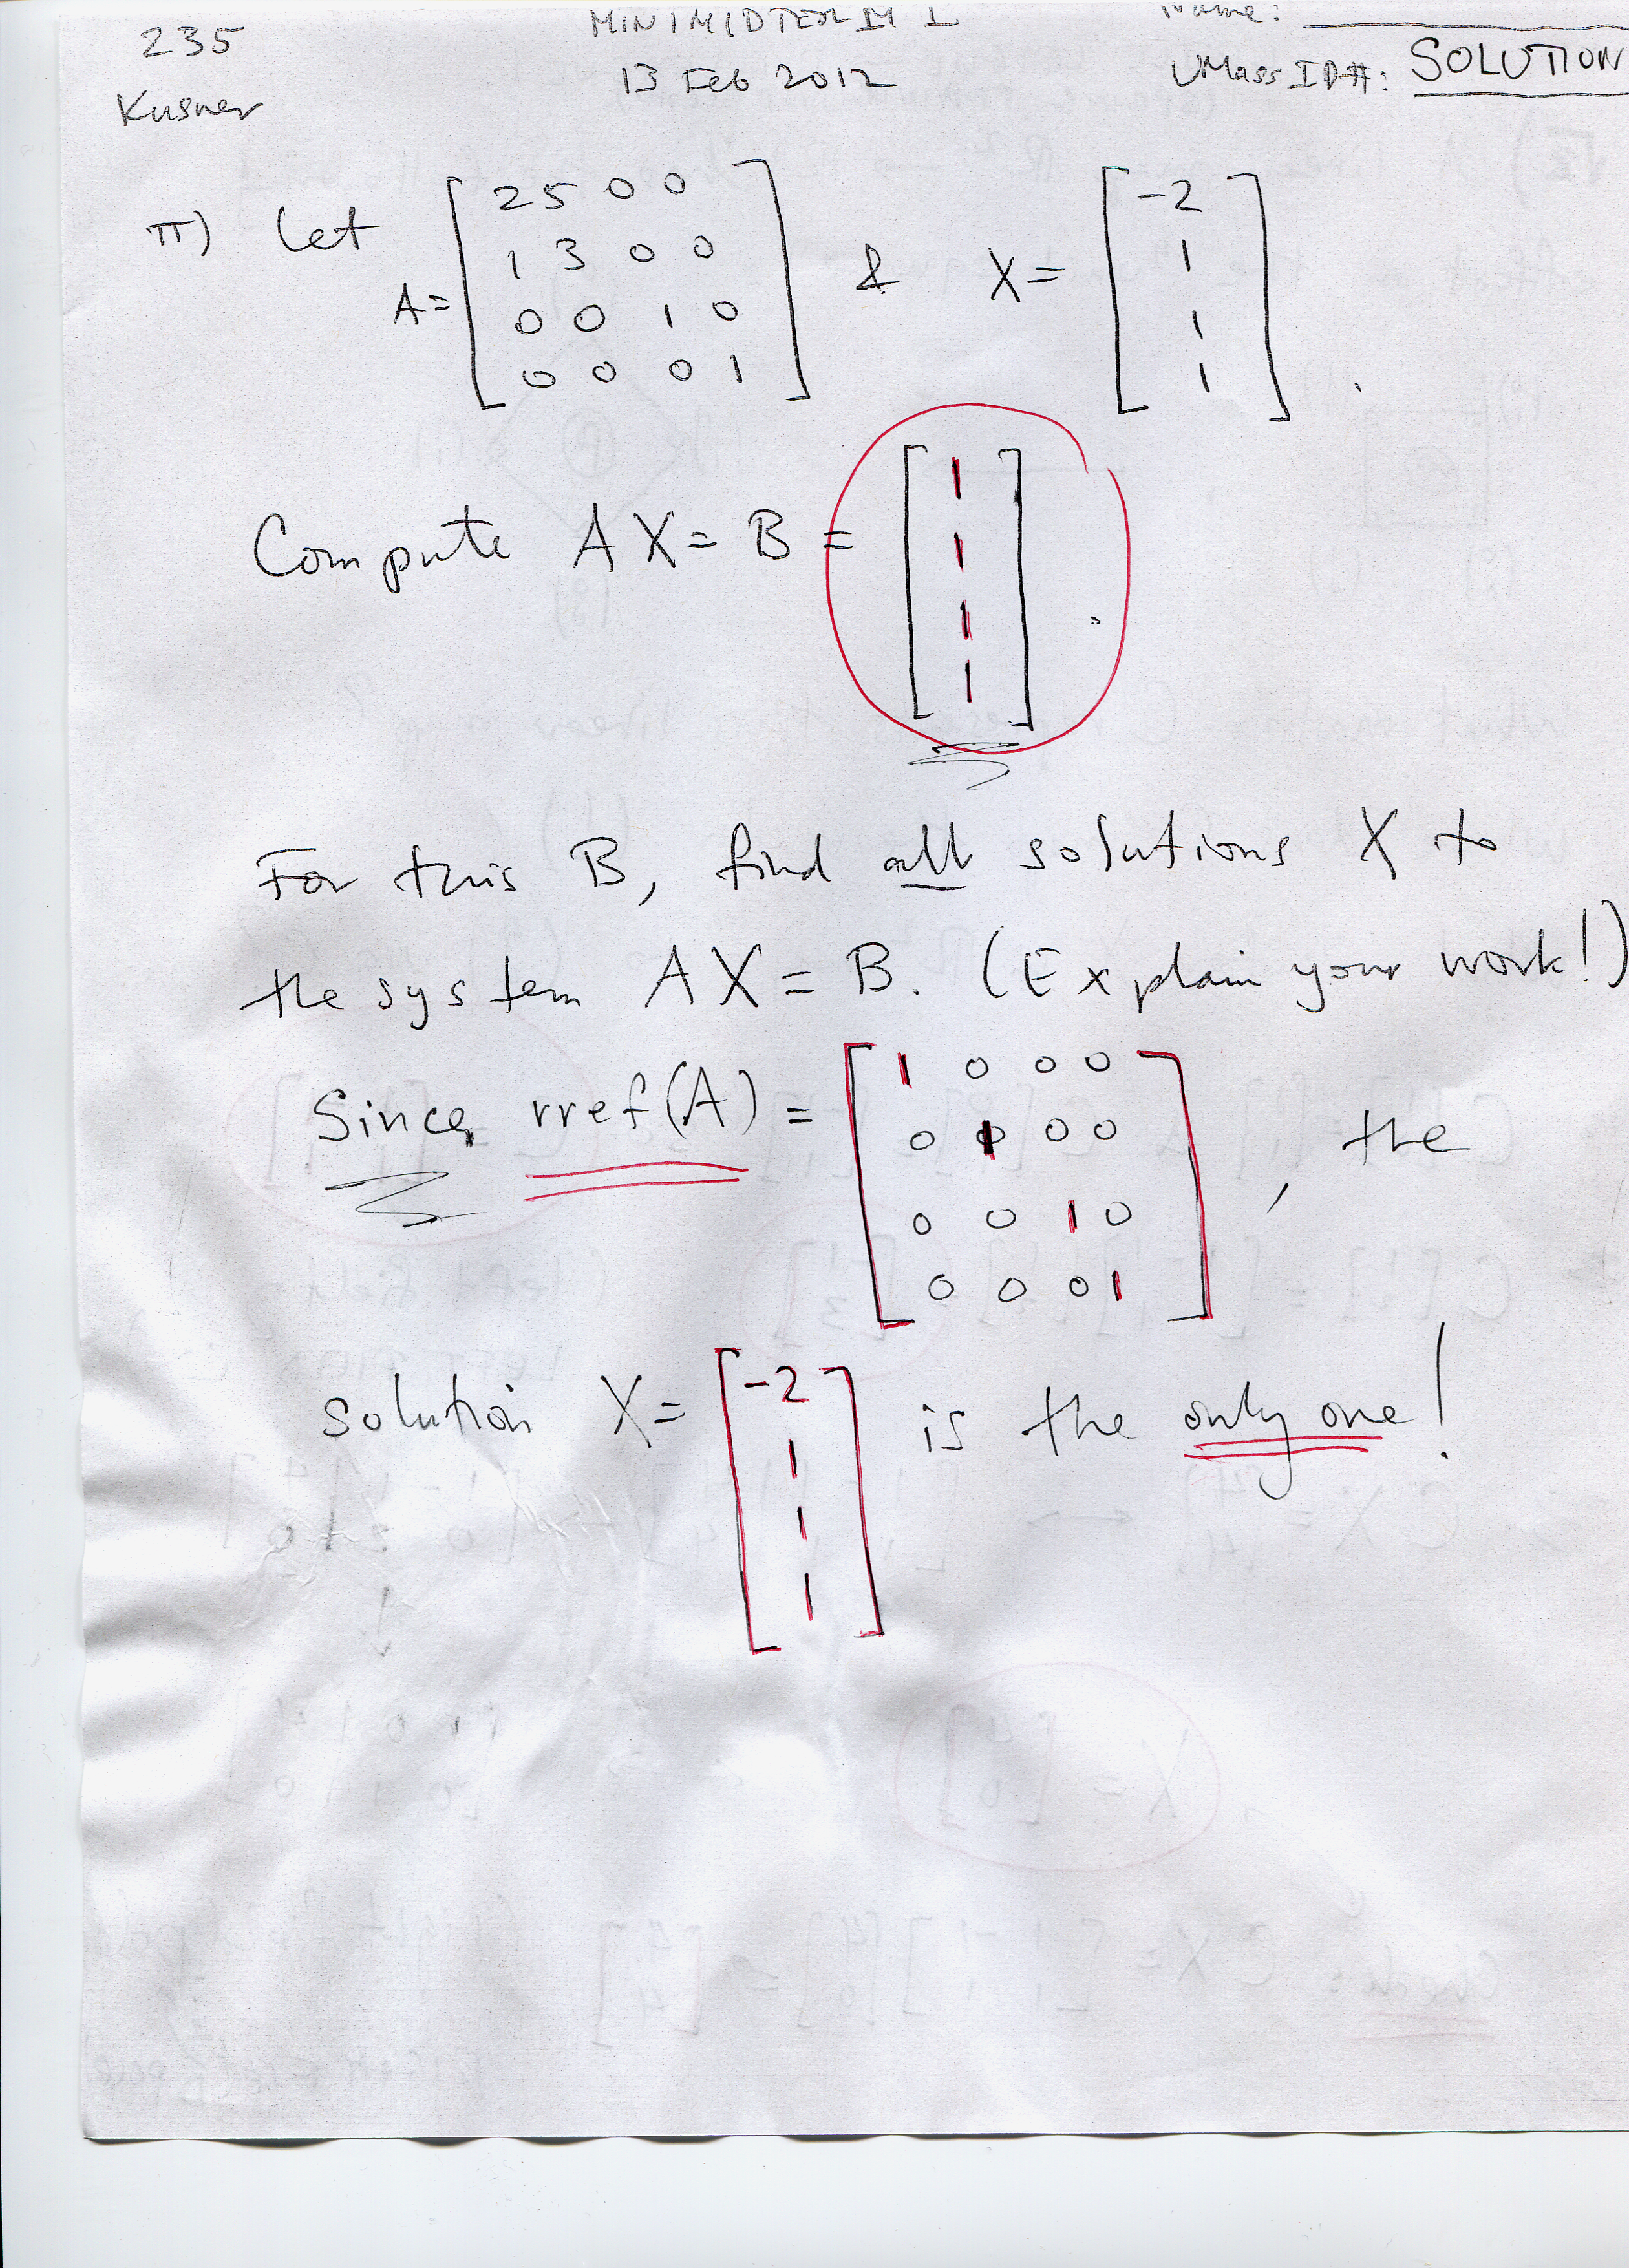 235
MINIMIDTERM I
Name:
Kusner
13 Feb 2012
UMass ID#: SOLUTION
π) Let A = [ 2 5 0 0
1 3 0 0
0 0 1 0
0 0 0 1 ] & X = [ -2
1
1
1 ] .
Compute AX = B = [ 1
1
1
1 ] .
For this B, find all solutions X to
the system AX = B. (Explain your work!)
Since rref(A) = [ 1 0 0 0
0 1 0 0
0 0 1 0
0 0 0 1 ] , the
solution X = [ -2
1
1
1 ] is the only one!